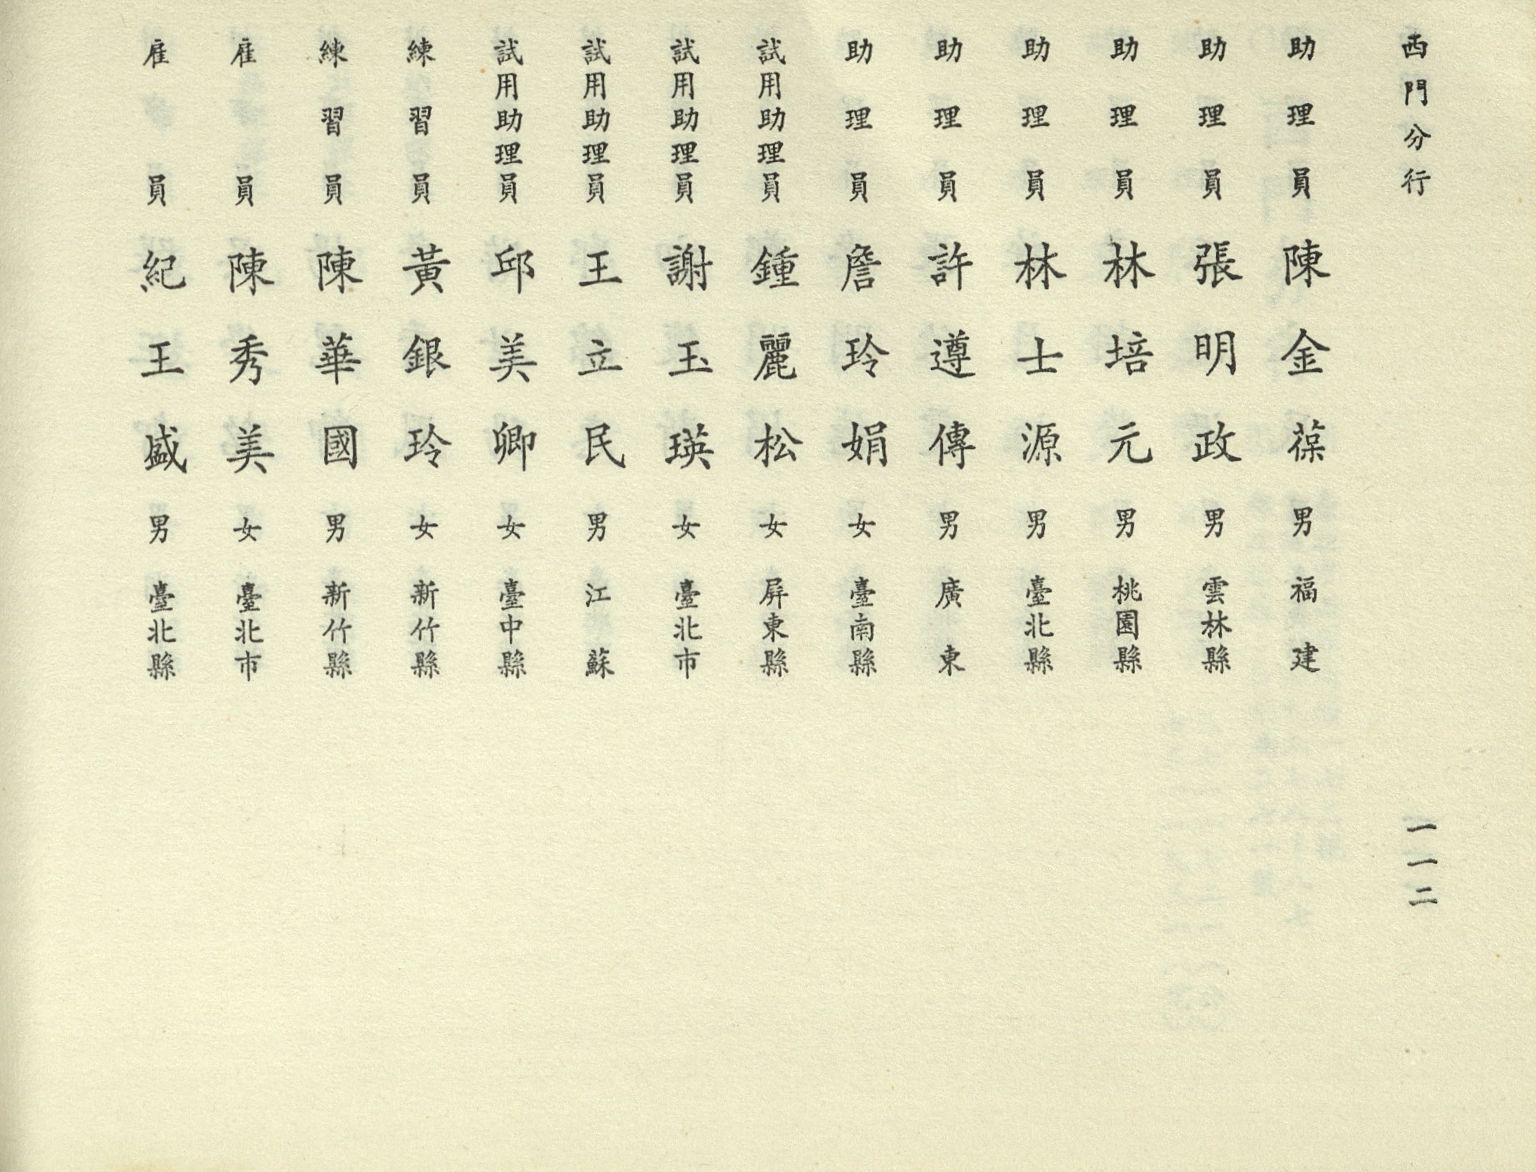 西門分行 一一二
助理員 陳金葆 男 福建
助理員 張明政 男 雲林縣
助理員 林培元 男 桃園縣
助理員 林士源 男 臺北縣
助理員 許遵傳 男 廣東
助理員 詹玲娟 女 臺南縣
試用助理員 鍾麗松 女 屏東縣
試用助理員 謝玉瑛 女 臺北市
試用助理員 王立民 男 江蘇
試用助理員 邱美卿 女 臺中縣
練習員 黃銀玲 女 新竹縣
練習員 陳華國 男 新竹縣
雇員 陳秀美 女 臺北市
雇員 紀王盛 男 臺北縣